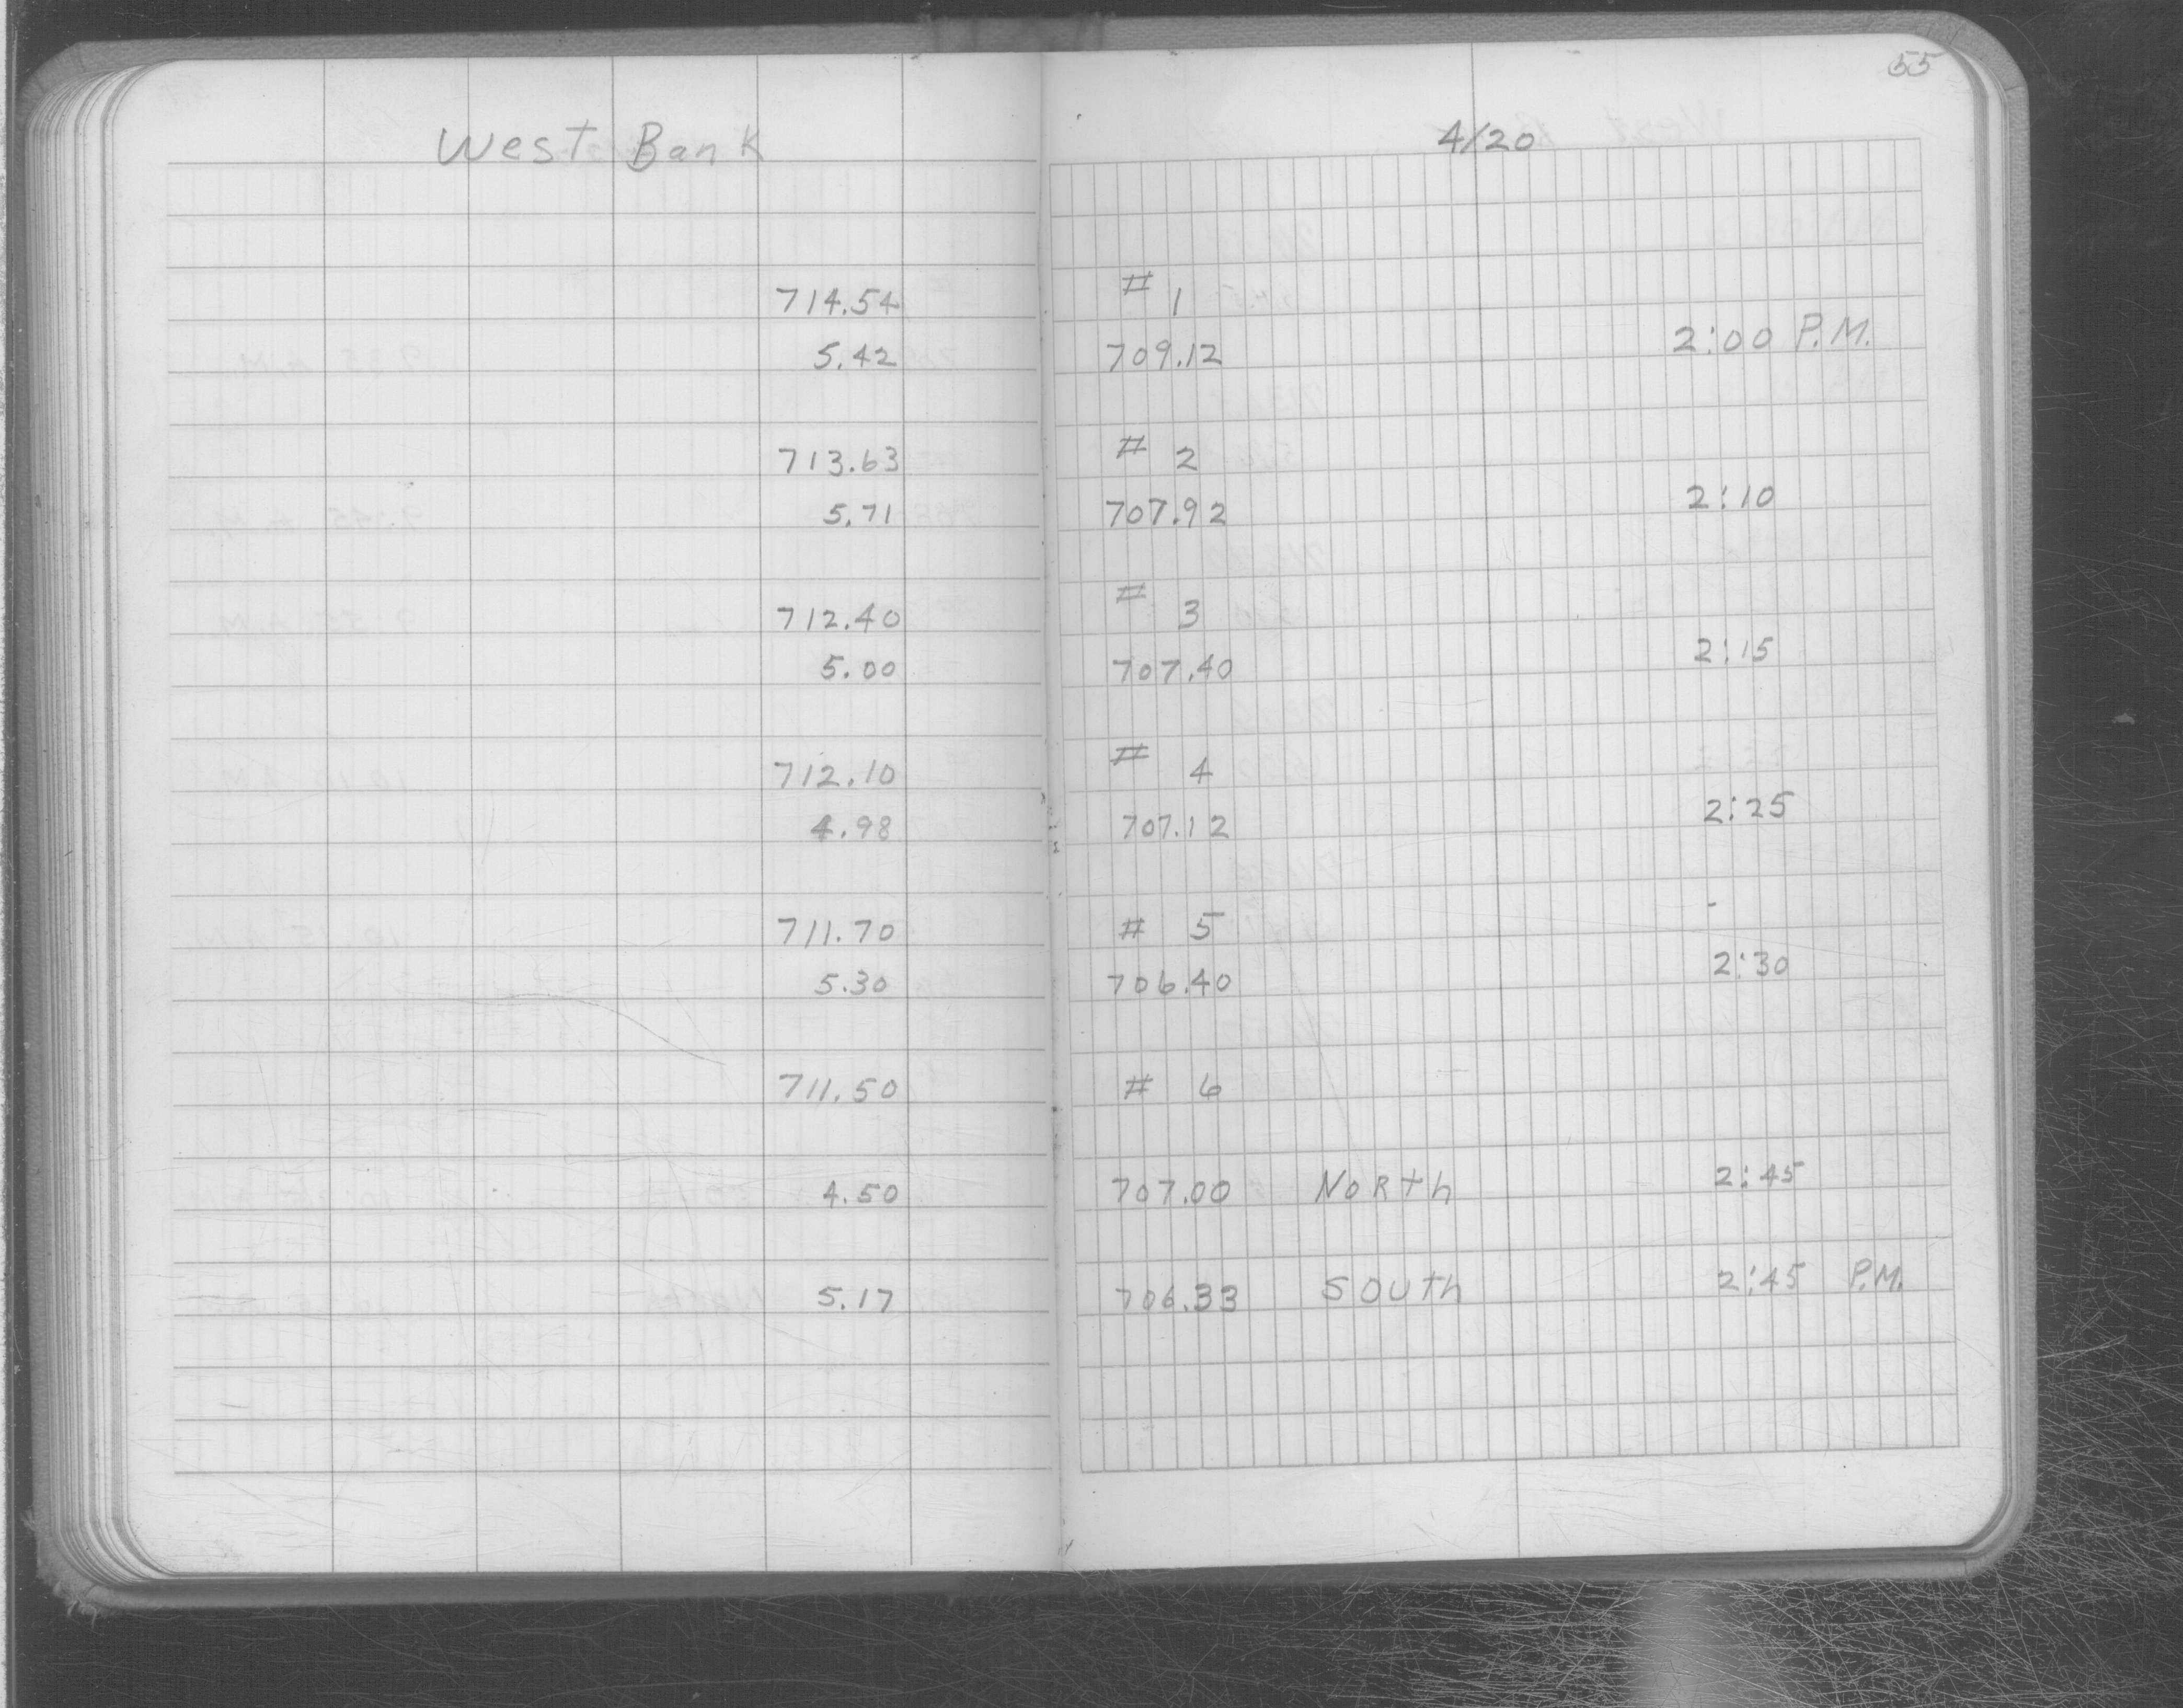 55
West Bank 4/20
714.54 # 1
5.42 709.12 2:00 P.M.
713.63 # 2
5.71 707.92 2:10
712.40 # 3
5.00 707.40 2:15
712.10 # 4
4.98 707.12 2:25
711.70 # 5
5.30 706.40 2:30
711.50 # 6
4.50 707.00 North 2:45
5.17 706.33 South 2:45 P.M.